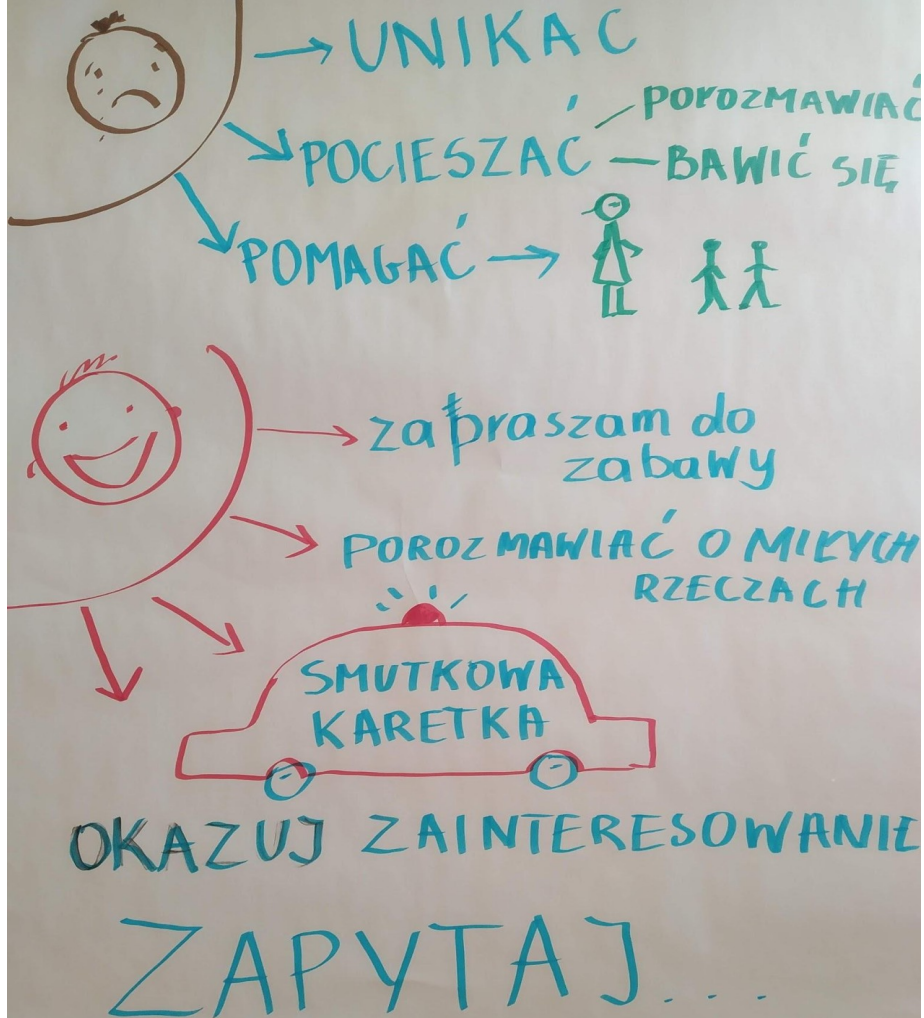 UNIKAC
POCIESZAĆ
POROZMAWIAĆ
BAWIĆ SIĘ
POMAGAĆ
zapraszam do
zabawy
POROZMAWIAĆ O MIŁYCH
RZECZACH
SMUTKOWA
KARETKA
OKAZUJ ZAINTERESOWANIE
ZAPYTAJ...